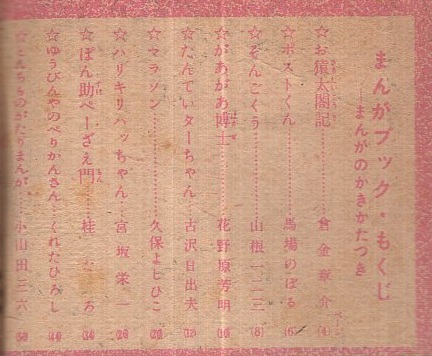 まんがブック・もくじ
――まんがのかきかたつき
☆お猿太閤記…………倉金章介(4)
☆ポストくん…………馬場のぼる(6)
☆そんごくう…………山根一二三(8)
☆があがあ博士…………花野原芳明(10)
☆たんていターちゃん…古沢日出夫(12)
☆マラソン…………久保よしひこ
☆ハリキリハッちゃん…宮坂栄一
☆ぽん助べーざえ門…桂
ゆうびんやのぺりかんさん…くれたひろし
小山田三六